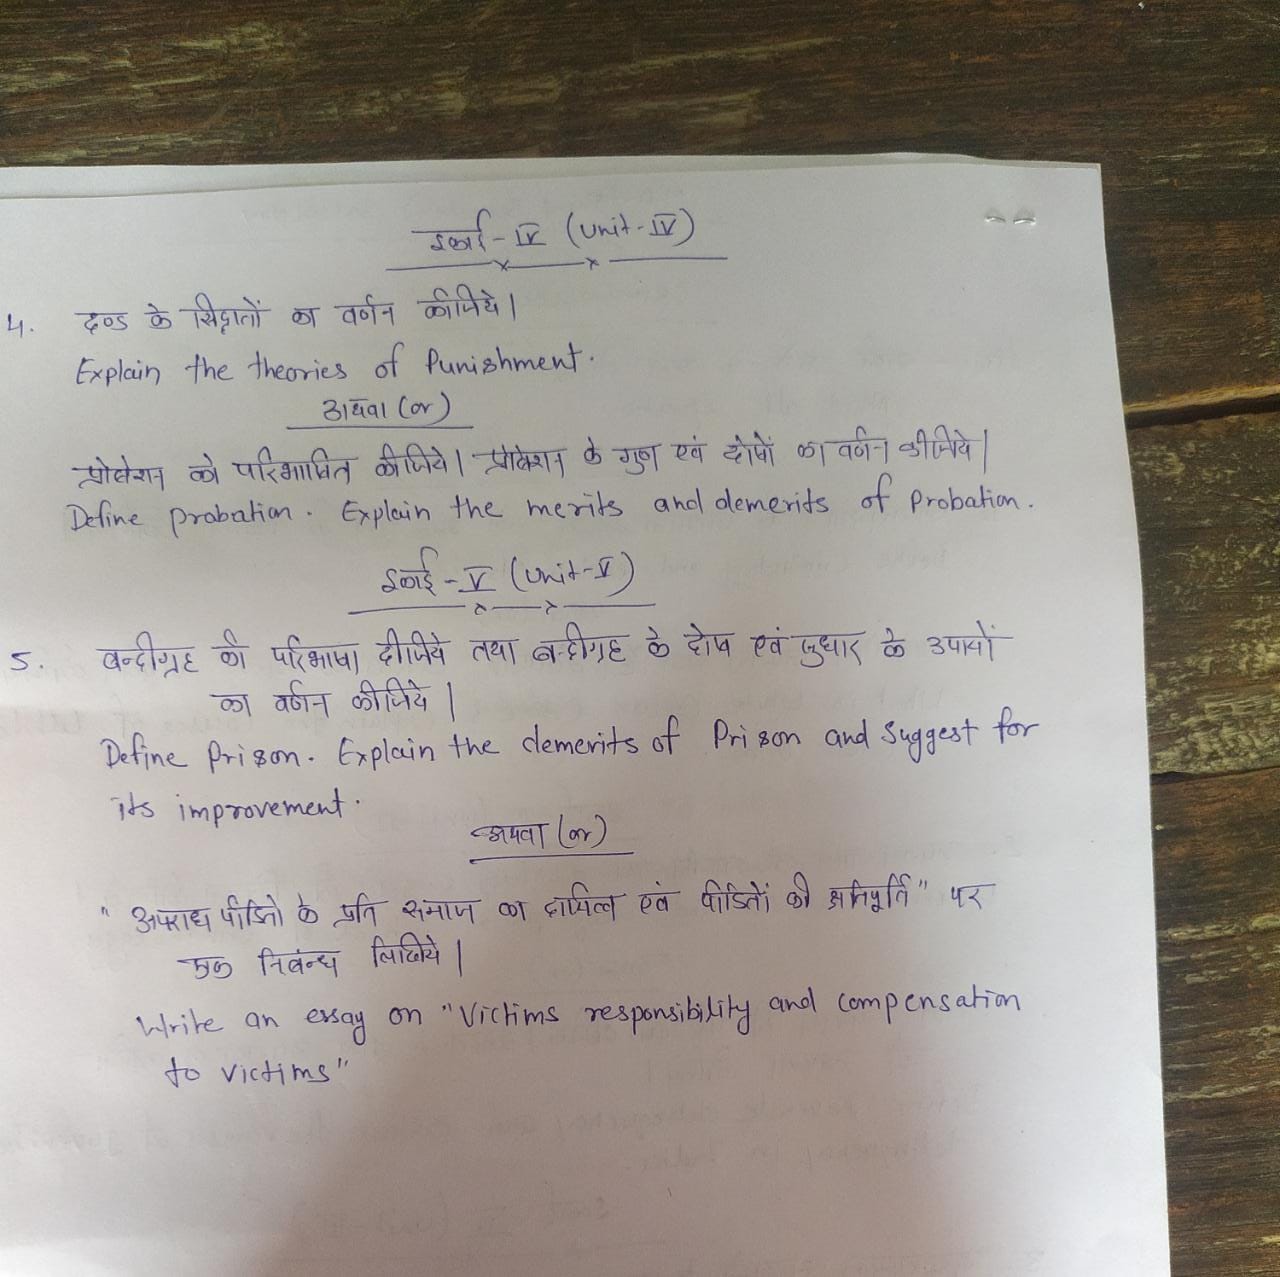 इकाई - IV (Unit - IV)
4. दण्ड के सिद्वातों का वर्णन कीजिये।
Explain the theories of Punishment.
अथवा (or)
प्रोबेशन को परिभाषित कीजिये। प्रोबेशन के गुण एवं दोषों का वर्णन कीजिये।
Define probation. Explain the merits and demerits of Probation.
इकाई - V (Unit - V)
5. बन्दीग्रह की परिभाषा दीजिये तथा बन्दीग्रह के दोष एवं सुधार के उपायों
का वर्णन कीजिये।
Define Prison. Explain the demerits of Prison and Suggest for
its improvement.
अथवा (or)
"अपराध पीडितो के प्रति समाज का दायित्व एवं पीडितों की क्षतिपूर्ति" पर
एक निबंन्ध लिखिये।
Write an essay on "Victims responsibility and compensation
to victims"